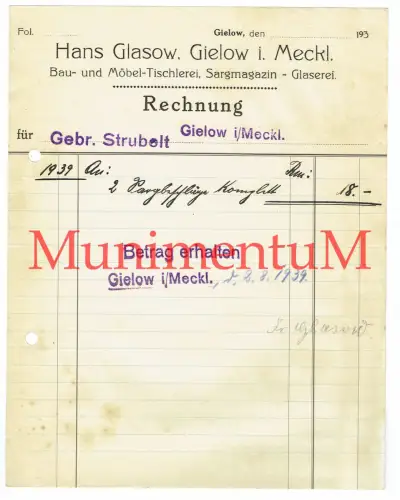 Fol.
Gielow, den 193
Hans Glasow, Gielow i. Meckl.
Bau- und Möbel-Tischlerei, Sargmagazin - Glaserei.
Rechnung
für Gebr. Strubelt Gielow i/Meckl.
1939 An: Rm:
2 Sargbeschläge Komplett 18.-
MunimentuM
Betrag erhalten
Gielow i/Meckl., d. 2.8.1939.
Glasow